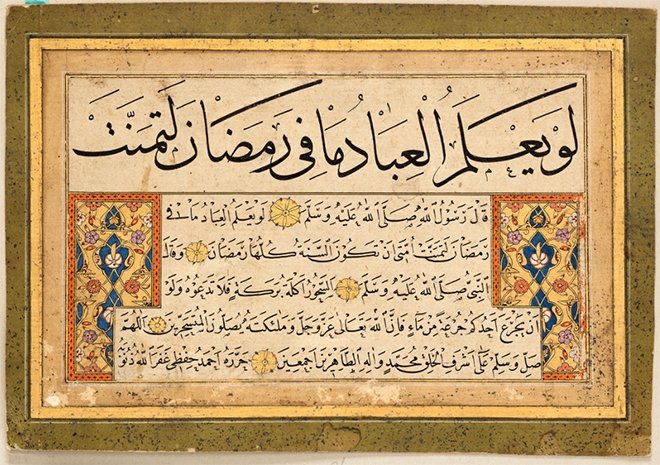 لَو يَعْلَمُ الْعِبَادُ مَا فِي رَمَضَانَ لَتَمَنَّتْ
قَالَ رَسُولُ اللهِ صَلَّى اللهُ عَلَيْهِ وَسَلَّمَ لَو يَعْلَمُ الْعِبَادُ مَا فِي
رَمَضَانَ لَتَمَنَّتْ أُمَّتِي أَنْ تَكُونَ السَّنَةُ كُلُّهَا رَمَضَانَ وَقَالَ
النَّبِيُّ صَلَّى اللهُ عَلَيْهِ وَسَلَّمَ السَّحُورُ أَكْلَةُ بَرَكَةٍ فَلَا تَدَعُوهُ وَلَوْ
أَنْ يَجْرَعَ أَحَدُكُمْ جُرْعَةً مِنْ مَاءٍ فَإِنَّ اللهَ تَعَالَى عَزَّ وَجَلَّ وَمَلٰئِكَتَهُ يُصَلُّونَ الْمُتَسَحِّرِينَ اَللّٰهُمَّ
صَلِّ وَسَلِّمْ عَلَى أَشْرَفِ الْخَلْقِ مُحَمَّدٍ وَآلِهِ الطَّاهِرِينَ أَجْمَعِينَ حَرَّرَهُ أَحْمَدُ حِفْظِي غَفَرَ اللهُ ذُنُوبَهُ